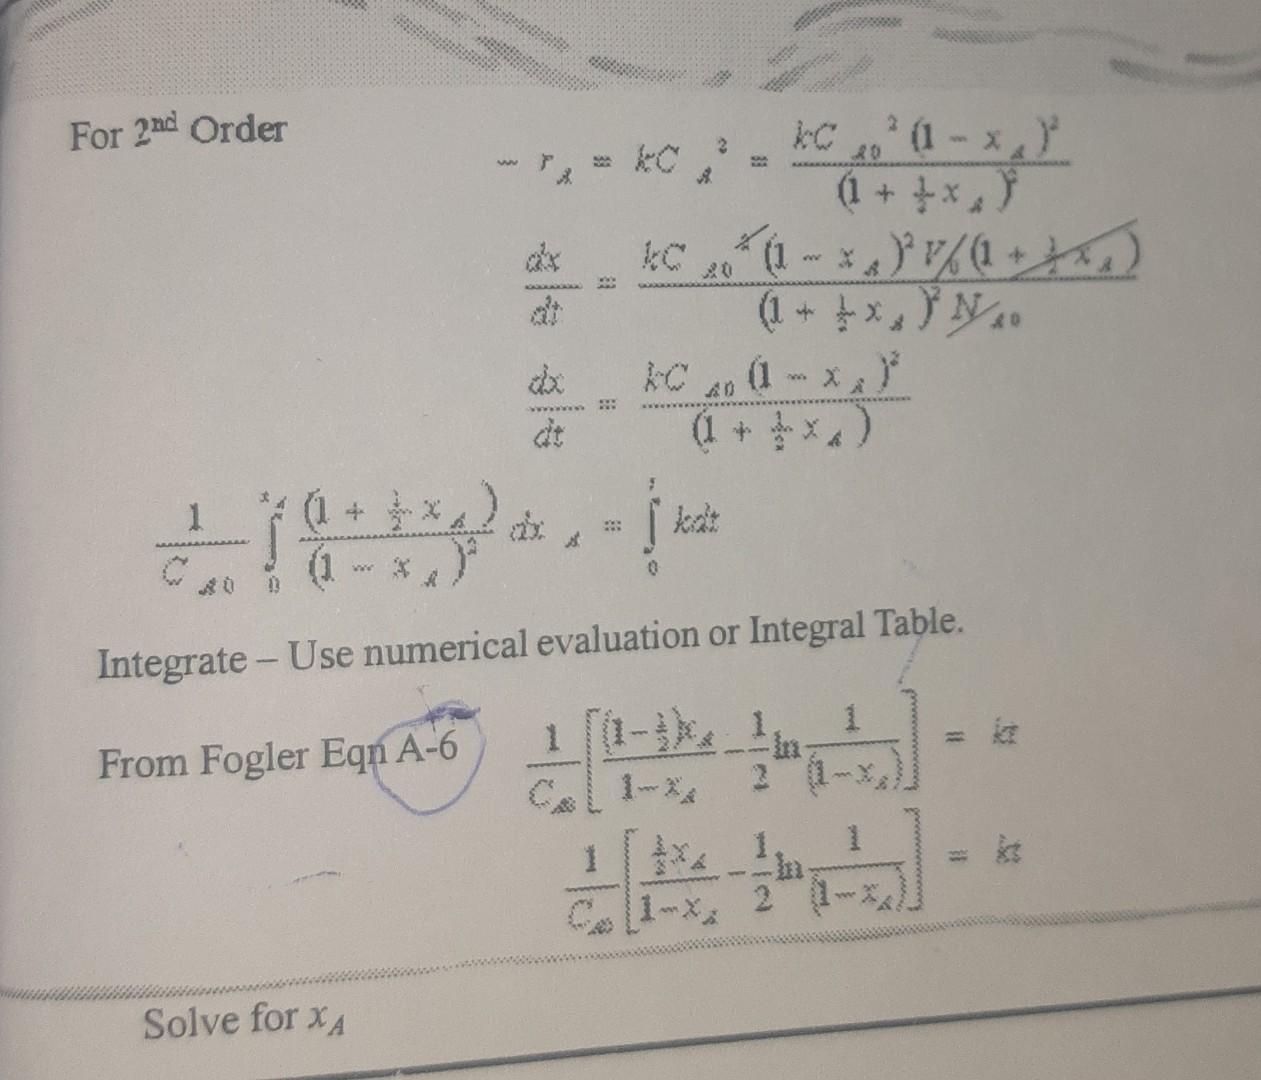 For 2nd Order
− r_A = kC_A² = kC_A0² (1 − x_A)² / (1 + ½x_A)²
dx/dt = kC_A0² (1 − x_A)² V_0 (1 + ½x_A) / (1 + ½x_A)² N_A0
dx/dt = kC_A0 (1 − x_A)² / (1 + ½x_A)
1/C_A0 ∫_0^x_A (1 + ½x_A) / (1 − x_A)² dx_A = ∫_0^t kdt
Integrate – Use numerical evaluation or Integral Table.
From Fogler Eqn A-6 1/C_A0 [(1−½)x_A / 1−x_A − 1/2 ln 1/(1−x_A)] = kt
1/C_A0 [½x_A / 1−x_A − 1/2 ln 1/(1−x_A)] = kt
Solve for x_A